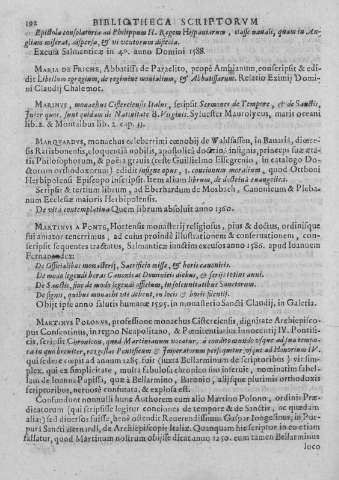 192 BIBLIOTHECA SCRIPTORVM
Epistola consolatoria ad Philippum II. Regem Hispaniarum, classe nauali, quam in An-
gliam miserat, dispersa, & vi ventorum disiecta.
Excusa Salmanticæ in 4°. anno Domini 1588.
MARIA DE FRICHE, Abbatissa de Paracleto, propè Ambianum, conscripsit & edi-
dit Libellum egregium, de regimine monialium, & Abbatissarum. Relatio Eximij Domi-
ni Claudij Chalemot.
MARINVS, monachus Cisterciensis Italus, scripsit Sermones de Tempore, & de Sanctis,
Inter quos, sunt quidam de Natiuitate B. Virginis. Sylvester Maurolycus, maris oceani
lib. 2. & Montalbus lib. 2. cap. 33.
MARQVARDVS, monachus celeberrimi cœnobij de Walssassen, in Bauaria, diœce-
sis Ratisbonensis, eloquentiâ nobilis, apostolicâ doctrinâ insignis, princeps suæ æta-
tis Philosophorum, & poëta grauis (teste Guillielmo Eysegrenio, in catalogo Doc-
torum orthodoxorum) edidit insigne opus, contionum moralium, quod Otthoni
Herbipolensi Episcopo inscripsit. Item alium librum, de doctrina euangelica.
Scripsit & tertium librum, ad Eberhardum de Mosbach, Canonicum & Pleba-
num Ecclesiæ maioris Herbipolensis.
De vita contemplatiua Quem librum absoluit anno 1360.
MARTINVS A PONTE, Hortensis monasterij religiosus, pius & doctus, ordinisque
sui amator tenerrimus, ad cuius proindè illustrationem & conseruationem, con-
scripsit sequentes tractatus, Salmanticæ sanctim excusos anno 1586. apud Ioannem
Fernandez:
De Officialibus monasterij, Sacrificio missæ, & horis canonicis.
De modo legendi horas Canonicas Dominicis diebus, & feriis totius anni.
De Sanctis, siue de modis legendi officium, in solemnitatibus Sanctorum.
De signis, quibus monachi uti debent, in locis & horis silentij.
Obijt ipse anno salutis humanæ 1595. in monasterio Sancti Claudij, in Galecia.
MARTINVS POLONVS, professione monachus Cisterciensis, dignitate Archiepisco-
pus Consentinus, in regno Neapolitano, & Pœnitentiarius Innocentij IV. Pontifi-
cis, scripsit Chronicon, quod Martinianum vocatur, à condito mundo vsque ad sua tempo-
ra in quo breuiter, res gestas Pontificum & Imperatorum persequitur vsque ad Honorium IV.
qui sedere cœpit ad annum 1285 fuit (juxta Bellarminum de scriptoribus) vir sim-
plex, qui ex simplicitate, multa fabulosa chronico suo inseruit, nominatim fabel-
lam de Ioanna Papissa, quæ à Bellarmino, Baronio, aliisque plurimis orthodoxis
scriptoribus, neruosè confutata, & explosa est.
Confundunt nonnulli hunc Authorem cum alio Martino Polono, ordinis Præ-
dicatorum (qui scripsisse legitur conciones de tempore & de Sanctis, ac quædam
alia) sed diuersos fuisse, benè ostendit Reuerendissimus Gaspar Iongelinus, in Pur-
pura Sancti Bernardi, de Archiepiscopis Italiæ. Quanquam hic scriptor in eo etiam
fallatur, quod Martinum nostrum obiisse dicat anno 1250. cum tamen Bellarminus
loco